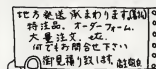 地方発送承わります。
特注品、オーダーフォーム、
大量注文、etc.
何でもお問合せ下さい
御見積り致します。